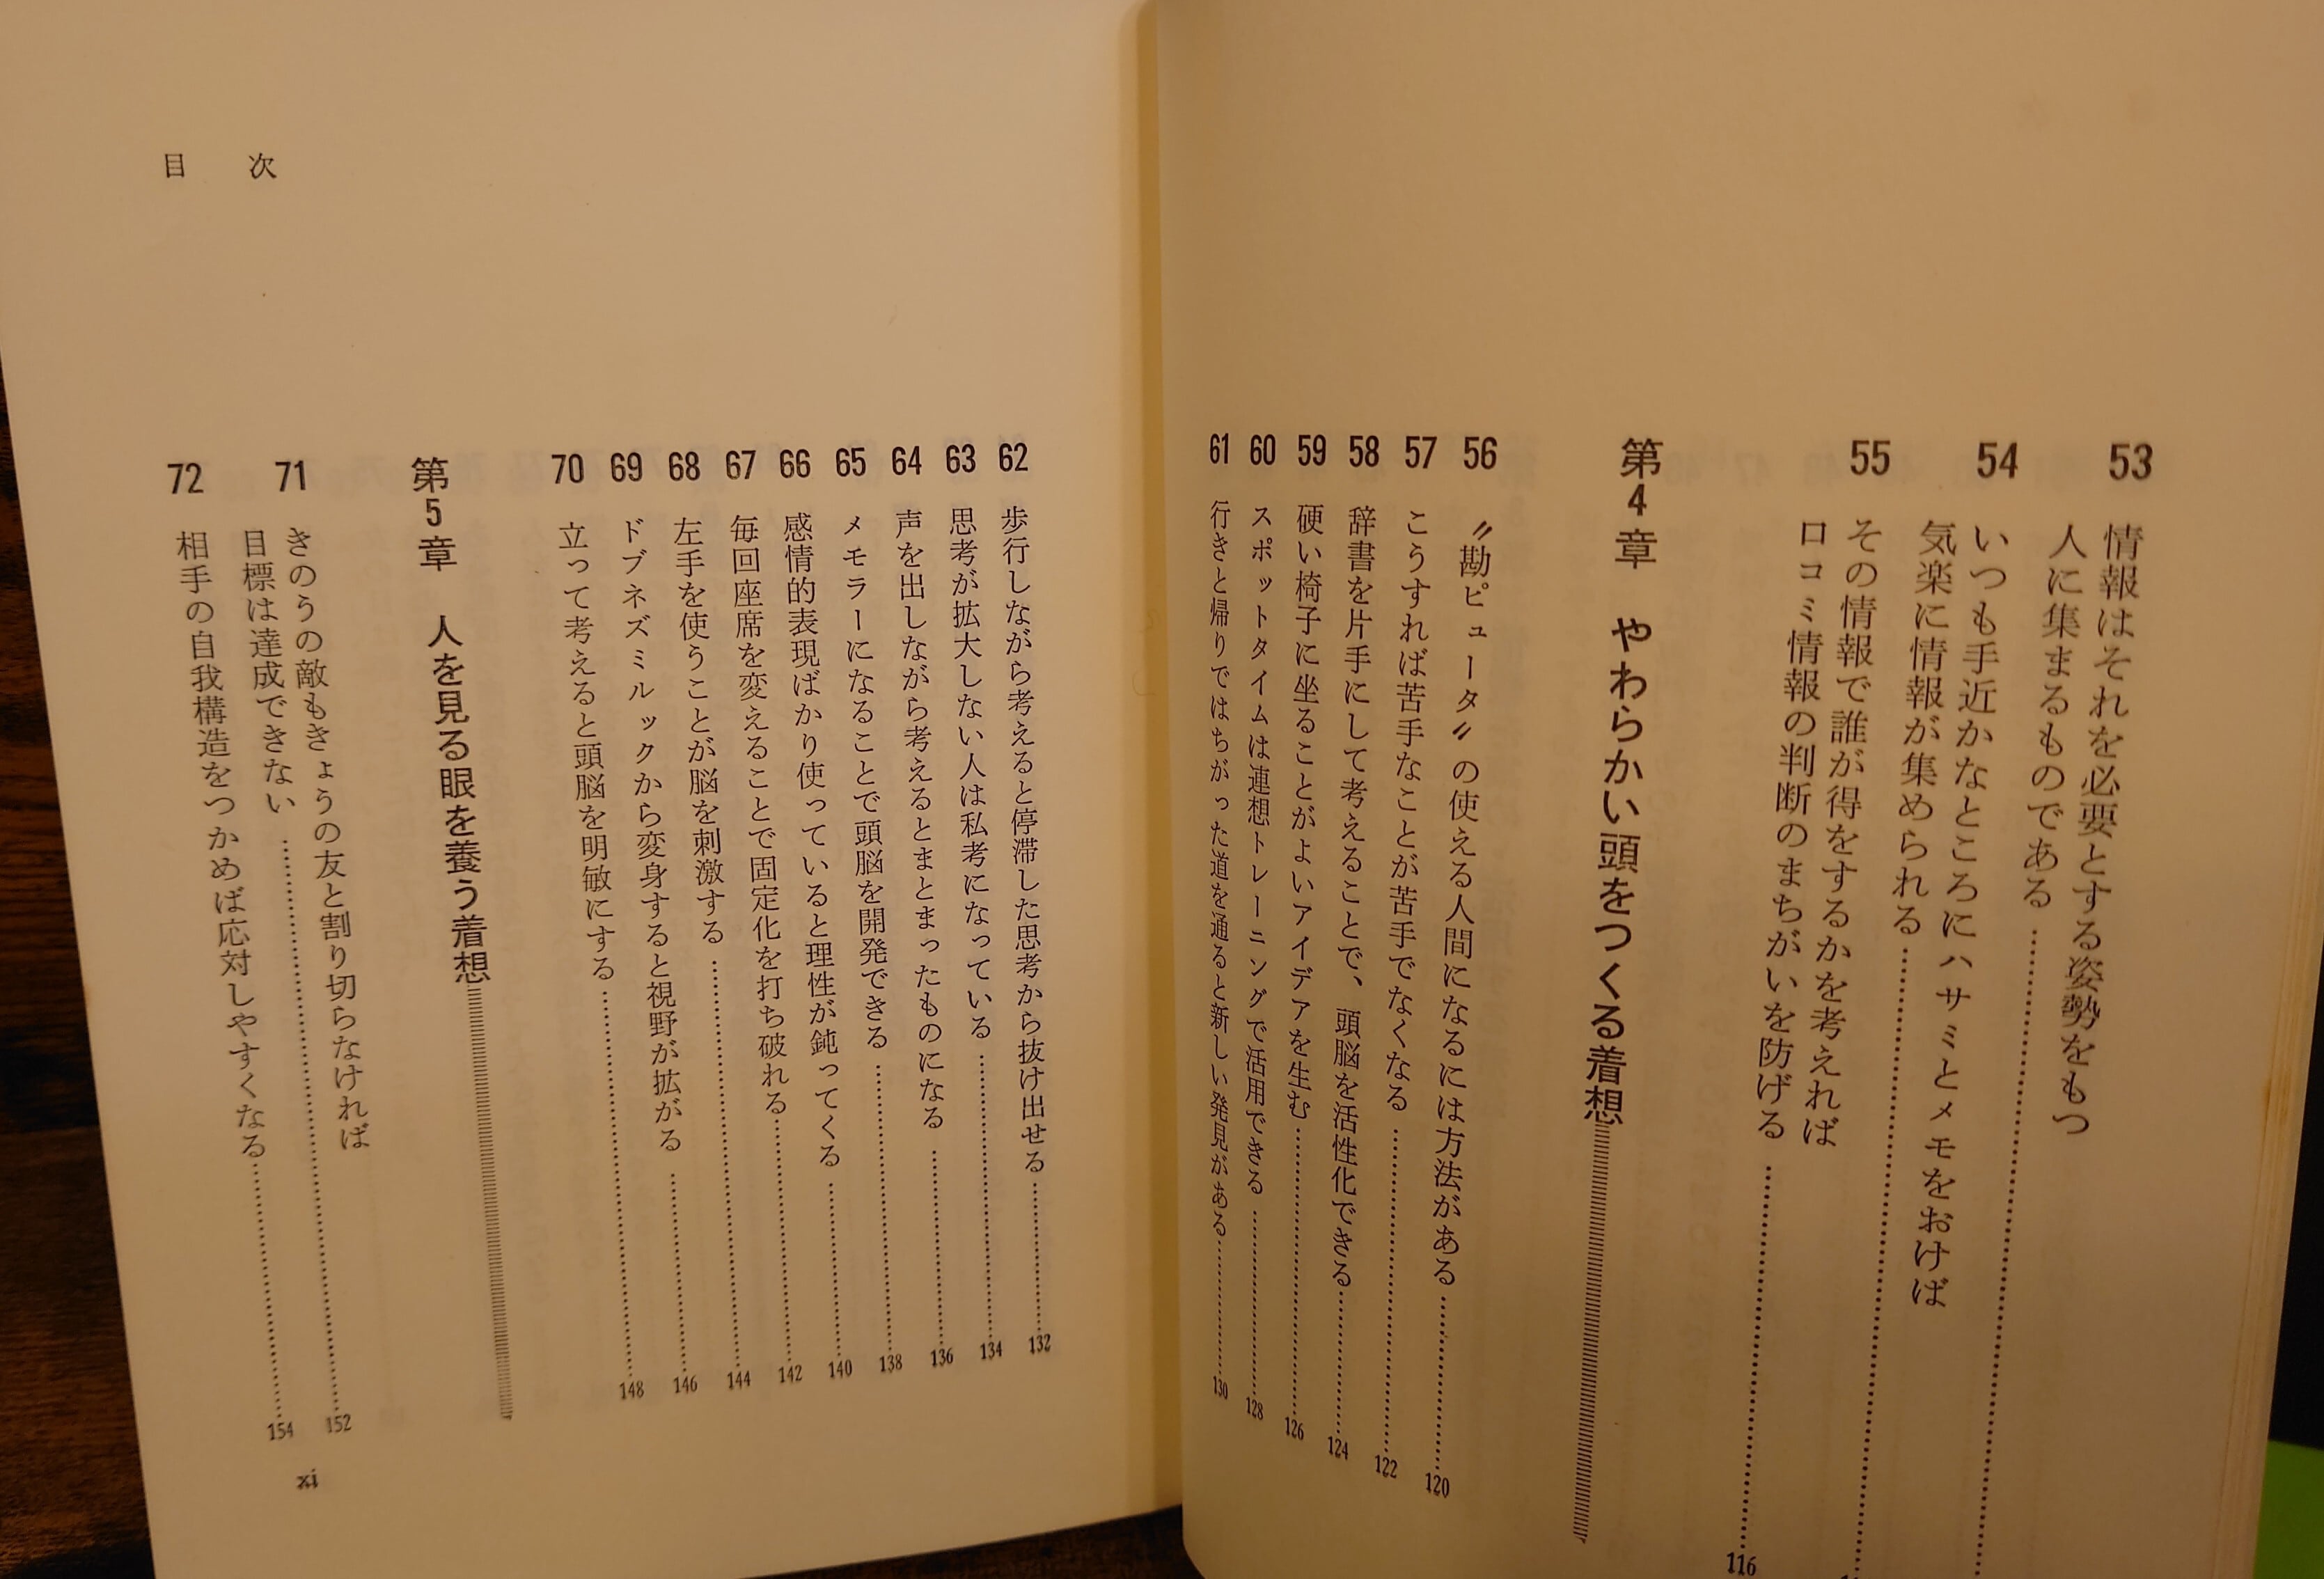 53 情報はそれを必要とする姿勢をもつ
人に集まるものである
54 いつも手近かなところにハサミとメモをおけば
気楽に情報が集められる
55 その情報で誰が得をするかを考えれば
口コミ情報の判断のまちがいを防げる 116
第4章 やわらかい頭をつくる着想
56 〝勘ピュータ〟の使える人間になるには方法がある 120
57 こうすれば苦手なことが苦手でなくなる 122
58 辞書を片手にして考えることで、頭脳を活性化できる 124
59 硬い椅子に坐ることがよいアイデアを生む 126
60 スポットタイムは連想トレーニングで活用できる 128
61 行きと帰りではちがった道を通ると新しい発見がある 130
62 歩行しながら考えると停滞した思考から抜け出せる 132
63 思考が拡大しない人は私考になっている 134
64 声を出しながら考えるとまとまったものになる 136
65 メモラーになることで頭脳を開発できる 138
66 感情的表現ばかり使っていると理性が鈍ってくる 140
67 毎回座席を変えることで固定化を打ち破れる 142
68 左手を使うことが脳を刺激する 144
69 ドブネズミルックから変身すると視野が拡がる 146
70 立って考えると頭脳を明敏にする 148
第5章 人を見る眼を養う着想
71 きのうの敵もきょうの友と割り切らなければ
目標は達成できない 152
72 相手の自我構造をつかめば応対しやすくなる 154
目次
xi